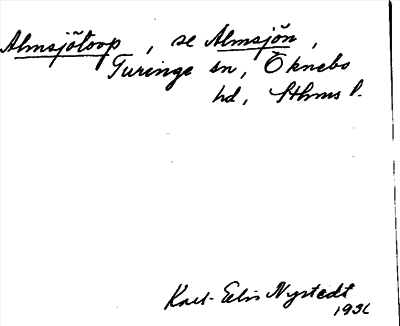 Almsjötorp, se Almsjön,
Turinge sn, Öknebo
hd, Sthms l.
Karl-Elis Nystedt